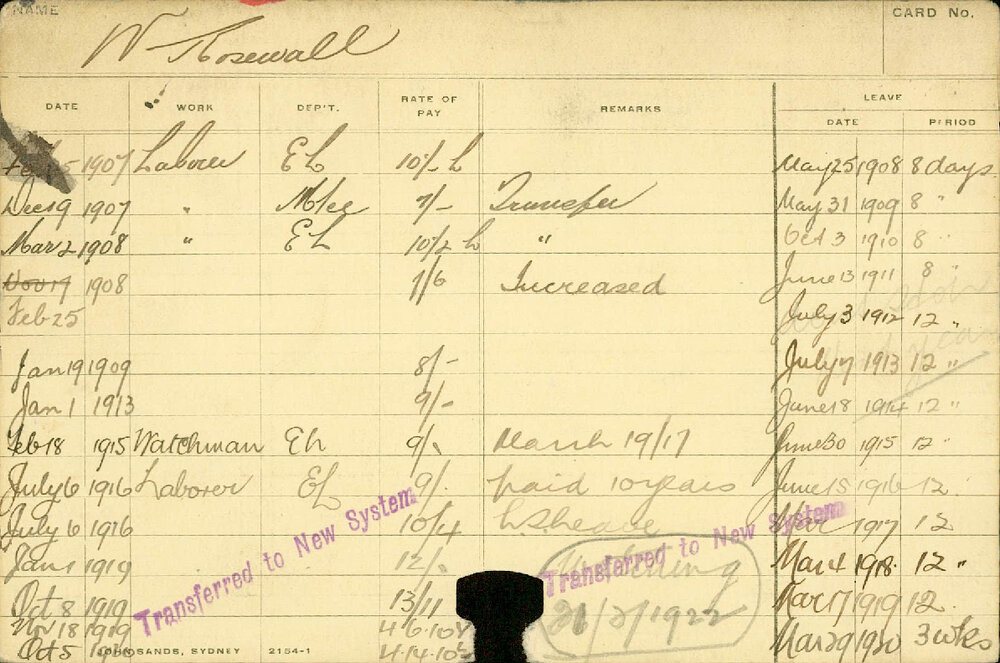 NAME
CARD No.
W Rosewall
DATE WORK DEP'T. RATE OF PAY REMARKS LEAVE
DATE PERIOD
5 1907 Laborer EL 10/- L May 25 1908 8 days
Dec 19 1907 " 7/- Transfer May 31 1909 8 "
Mar 2 1908 " EL 10/2 L " Oct 3 1910 8 "
Nov 19 1908 7/6 Increased June 13 1911 8 "
Feb 25 July 3 1912 12 "
Jan 19 1909 8/- July 7 1913 12 "
Jan 1 1913 9/- June 18 1914 12 "
Feb 18 1915 Watchman EL 9/- March 19/17 June 30 1915 12 "
July 6 1916 Laborer EL 9/- paid 10 years June 15 1916 12
July 6 1916 10/4 LS leave 1917 12
Jan 1 1919 12/- Mar 4 1918 12 "
Oct 8 1919 13/11 21/2/1922 Mar 17 1919 12
Nov 18 1919 4.6.10
Oct 5 4.14.10 Mar 29 1920 3 wks
Transferred to New System
Transferred to New System
JOHN SANDS, SYDNEY 2154-1